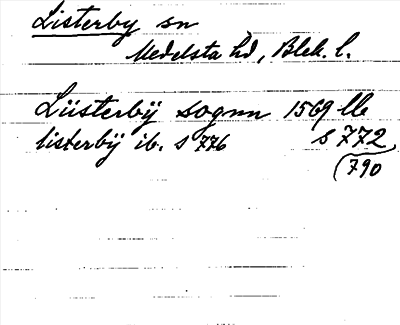 Listerby sn
Medelsta hd, Blek. l.
Liisterbÿ sognn 1569 lb
listerbÿ ib. s 776 s 772
(790